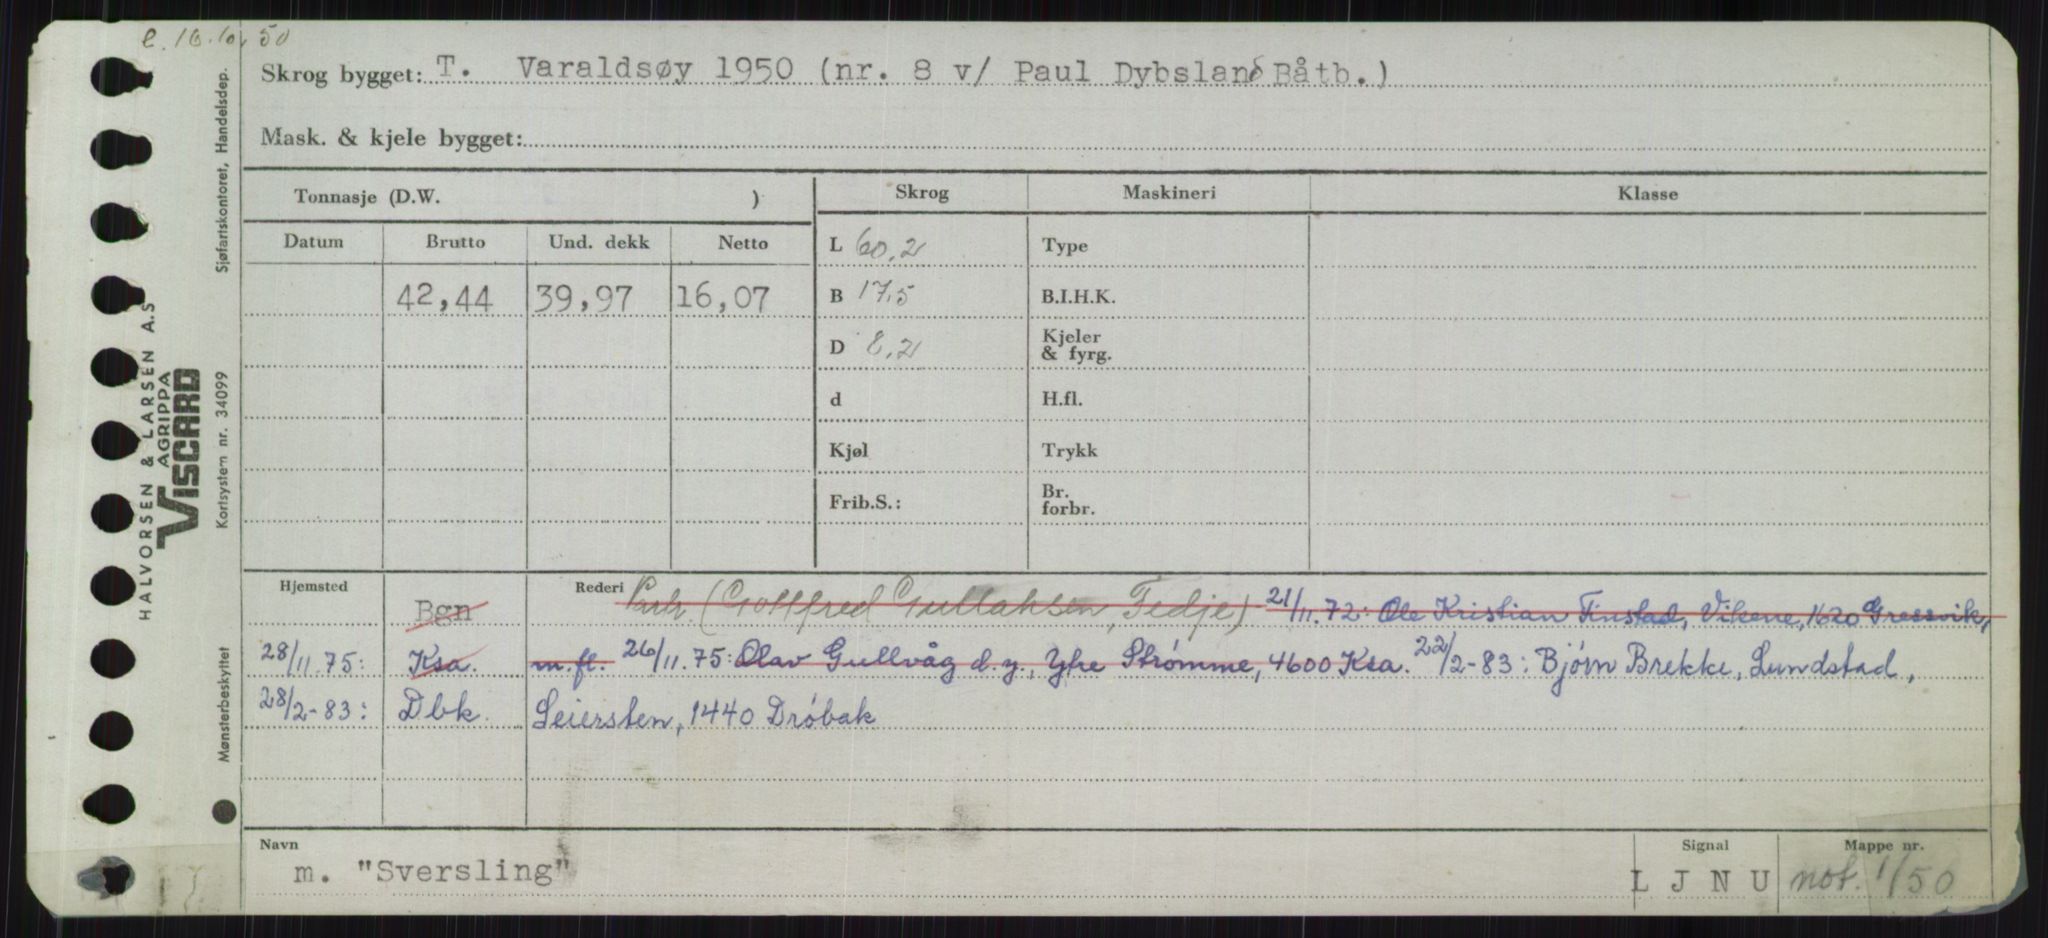 e. 16.10.50
Skrog bygget: T. Varaldsøy 1950 (nr. 8 v/ Paul Dybsland Båtb.)
Mask. & kjele bygget:
Tonnasje (D.W. )
Skrog
Maskineri
Klasse
Datum
Brutto
Und. dekk
Netto
42,44
39,97
16,07
L 60,2
B 17,5
D 8,2
d
Kjøl
Frib.S.:
Type
B.I.H.K.
Kjeler
& fyrg.
H.fl.
Trykk
Br.
forbr.
Hjemsted
Rederi
Bgn
Partr. (Gottfred Gullaksen, Fedje) 21/11.72: Ole Kristian Finstad, Vikene, 1620 Gressvik,
28/11.75: Ksa. m.fl. 26/11.75: Olav Gullvåg d.y., Ytre Strømme, 4600 Ksa. 22/2-83: Bjørn Brekke, Lundstad,
28/2-83: Dbk. Seiersten, 1440 Drøbak
Navn
m. "Sversling"
Signal
L J N U
Mappe nr.
not. 1/50
HALVORSEN & LARSEN A.S
AGRIPPA
VISCARD
Mønsterbeskyttet Kortsystem nr. 34099 Sjøfartskontoret, Handelsdep.